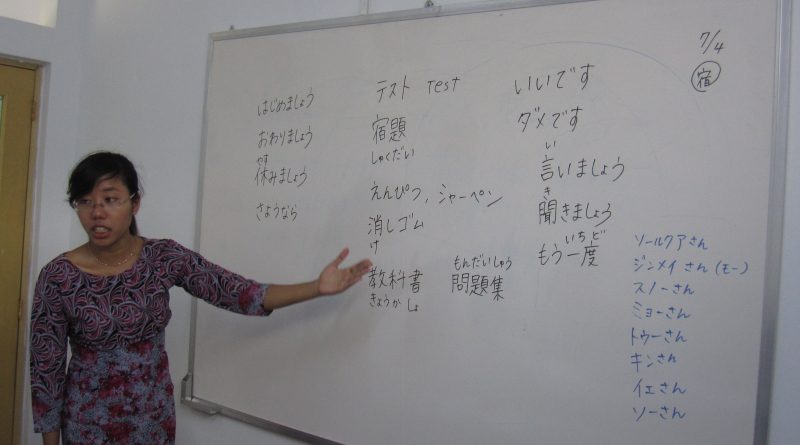 はじめましょう
おわりましょう
やす
休みましょう
さようなら
テスト Test
宿題
しゅくだい
えんぴつ、シャーペン
消しゴム
け
教科書
きょうかしょ
もんだいしゅう
問題集
いいです
ダメです
い
言いましょう
き
聞きましょう
いちど
もう一度
7/4
宿
ソールクアさん
ジンメイさん(モー)
スノーさん
ミョーさん
トゥーさん
キンさん
イェさん
ソーさん